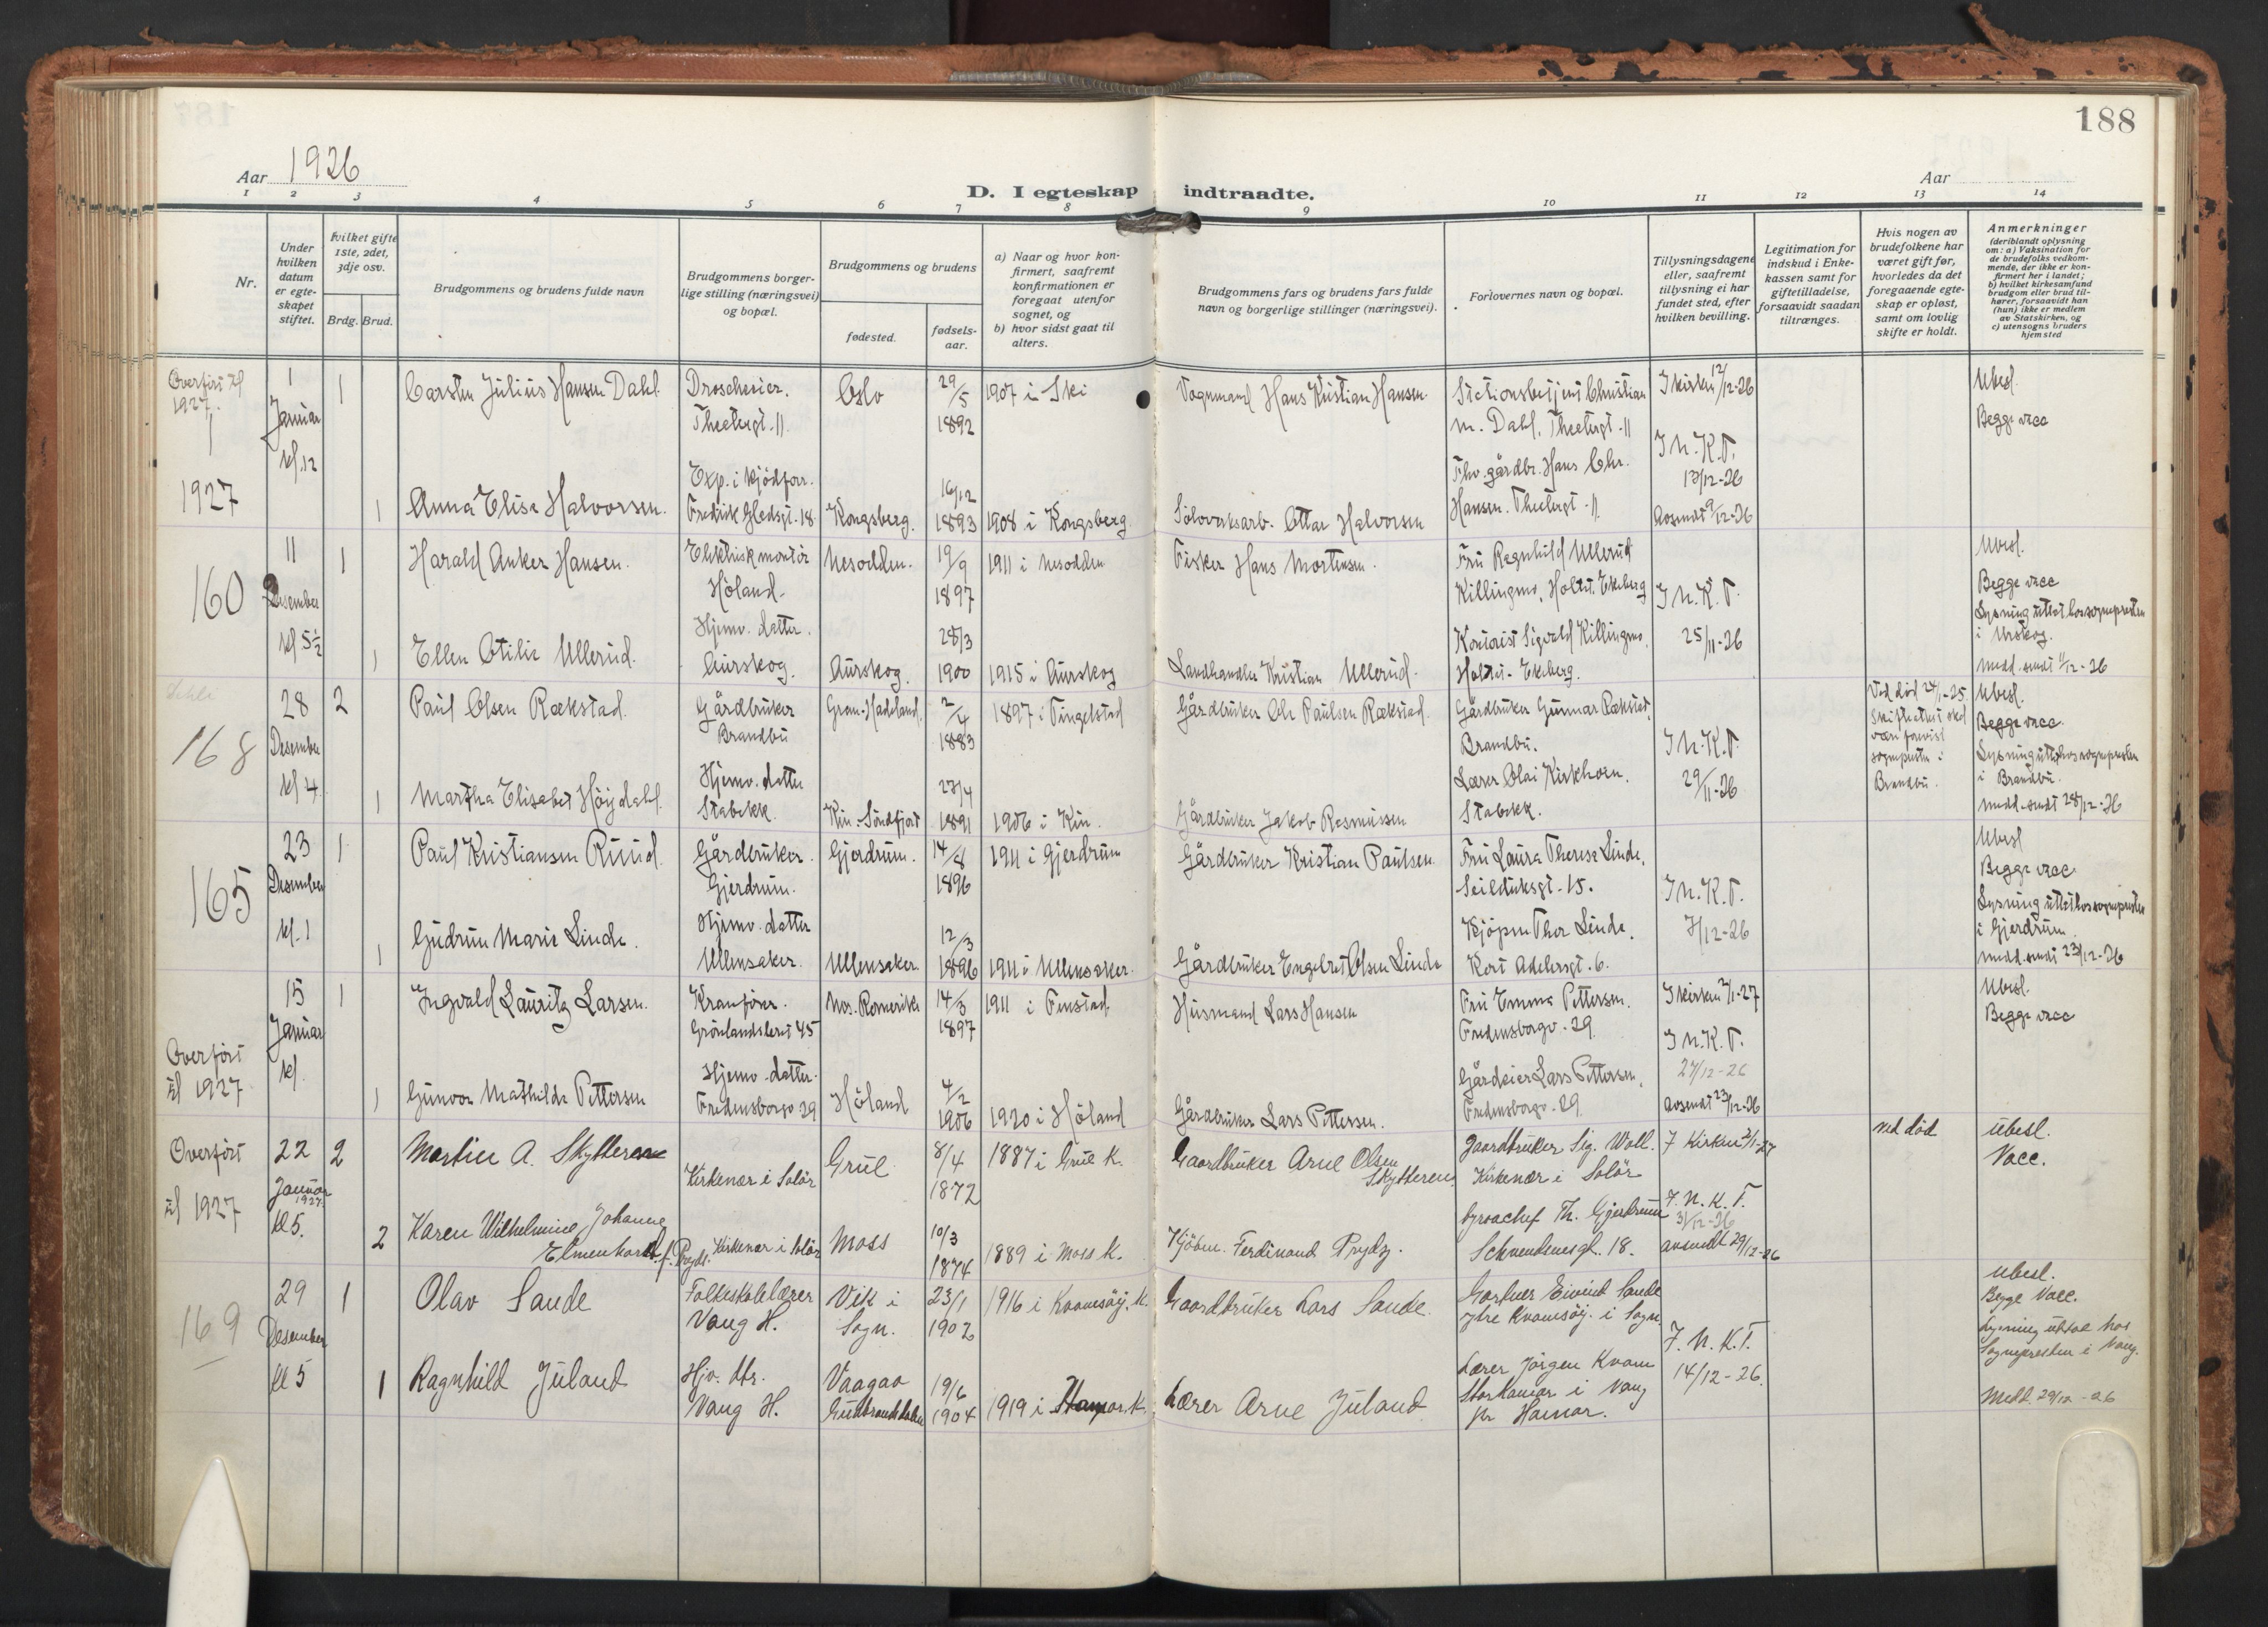 188
Aar 1926
D. I egteskap indtraadte.
Aar
1 2 3 4 5 6 7 8 9 10 11 12 13 14
Nr.
Under hvilken datum er egteskapet stiftet.
hvilket gifte 1ste, 2det, 3dje osv.
Brdg. Brud.
Brudgommens og brudens fulde navn
Brudgommens borgerlige stilling (næringsvei) og bopæl.
Brudgommens og brudens
fødested.
fødselsaar.
a) Naar og hvor konfirmert, saafremt konfirmationen er foregaat utenfor sognet, og
b) hvor sidst gaat til alters.
Brudgommens fars og brudens fars fulde navn og borgerlige stillinger (næringsvei).
Forlovernes navn og bopæl.
Tillysningsdagene eller, saafremt tillysning ei har fundet sted, efter hvilken bevilling.
Legitimation for indskud i Enkekassen samt for giftetilladelse, forsaavidt saadan tiltrænges.
Hvis nogen av brudefolkene har været gift før, hvorledes da det foregaaende egteskap er opløst, samt om lovlig skifte er holdt.
Anmerkninger (deriblandt oplysning om: a) Vaksination for de brudefolks vedkommende, der ikke er konfirmert her i landet; b) hvilket kirkesamfund brudgom eller brud tilhører, forsaavidt han (hun) ikke er medlem av Statskirken, og c) utensogns bruders hjemsted
Overført til 1927. 1 1927
1 Januar kl. 12
1 Carsten Julius Hansen Dahl. Droscheeier. Oslo 29/5 1892 1907 i Ski
Vognmand Hans Kristian Hansen. Christian M. Dahl, I kirken 12/12-26 Ubesl. Begge vacc
I N.K.T. 13/12-26
1 Anna Elise Halvorsen. Exp. i kjödforr. Kongsberg. 16/12 1893 1908 i Kongsberg
Sölvverksarb. Ottar Halvorsen Hans Chr. Hansen. Avsendt 9/12-26
160
11 Desember kl 5½
1 Harald Anker Hansen. Elektrisk montör Höland. Nesodden. 19/9 1897 1911 i Nesodden
Fisker Hans Mortensen. Fru Ragnhild Ullerud Killingmo, Holtet. Ekeberg I N.K.T. 25/11-26 Ubesl. Begge vacc
1 Ellen Otilie Ullerud. Hjemv. datter. Aurskog. Aurskog. 28/3 1900 1915 i Aurskog
Landhandler Kristian Ullerud. Sigvald Killingmo, Holtet. Ekeberg. i Urskog. Medd. sendt 11/12-26
168
28 Desember kl 4.
2 Paul Olsen Rækstad. Gårdbruker Brandbu Gran. Hadeland. 2/4 1883 1897 i Tingelstad
Gårdbruker Ole Paulsen Rækstad. Gårdbruker Gunnar Rækstad, Brandbu. I N.K.T. 29/11-26 Ved död 24/1-25. Ubesl. Begge vacc
1 Martha Elisabet Höydahl. Hjemv. datter Stabekk. Kin. Söndfjord 27/4 1891 1906 i Kin.
Gårdbruker Jakob Rasmussen Lærer Olai Kirkhorn. Stabekk. i Brandbu. Medd. sendt 28/12-26
165
23 Desember kl. 1
1 Paul Kristiansen Ruud. Gårdbruker. Gjerdrum. Gjerdrum. 1896 1911 i Gjerdrum
Gårdbruker Kristian Paulsen. Fru Laura Therese Linde, Seilduksgt. 15. I N.K.T. 7/12-26 Ubesl Begge vacc
1 Gudrun Marie Linde. Hjemv. datter Ullensaker. Ullensaker. 12/3 1896 1911 i Ullensaker.
Gårdbruker Engebret Olsen Linde Kjöpm Thor Linde, Kort Adelersgt. 6. i Gjerdrum. Medd. sendt 23/12-26
Overført til 1927
15 Januar kl.
1 Ingvald Lauritz Larsen. Kranförer. Grönlandsleret 45 Nes. Romerike 14/3 1897 1911 i Fenstad
Husmand Lars Hansen Fru Emma Pettersen. Fredensborgv. 29 I kirken 2/1-27 I N.K.T. 27/12-26 Ubesl. Begge vacc
1 Gunvor Mathilde Pettersen Hjemv. datter. Fredensborgv 29 Höland 4/2 1906 1920 i Höland
Gårdbruker Lars Pettersen. Gårdeier Lars Pettersen, Fredensborgv. 29 Avsendt 23/12-26
Overført til 1927
22 Januar 1927. kl 5.
2 Martin A. Skytteren Kirkenær i Solör Grue 8/4 1872 1887 i Grue K.
Gaardbruker Arne Olsen Skytteren. Gaardbruker Sig. Woll. Kirkenær i Solör I Kirken 2/1-27 ved död ubesl. Vacc.
2 Karen Wilhelmine Johanne Elmenhorst f. Prydz. Kirkenær i Solör Moss 10/3 1874 1889 i Moss K.
Kjöbm. Ferdinand Prydz. Th. Gjerdrum Schwendenesgt. 18. I. N. K. T. 31/12-26 avsendt 29/12-26
169
29 Desember kl 5
1 Olav Sande Folkeskolelærer Vang H. Vik i Sogn. 23/1 1902 1916 i Kvamsöy. K.
Gaardbruker Lars Sande. Gartner Eivind Sande Ytre Kvamsöy. i Sogn. I. N. K. T. 14/12-26. ubesl. Begge Vacc. Lysning uttat hos Sognepresten i Vang.
1 Ragnhild Juland Hjv. dtr. Vang H. Vaagaa Gudbrandsdalen 19/6 1904 1919 i Hamar. K.
Lærer Arne Juland Lærer Jörgen Kvam Storhamar i Vang pr Hamar. Medd. 29/12-26